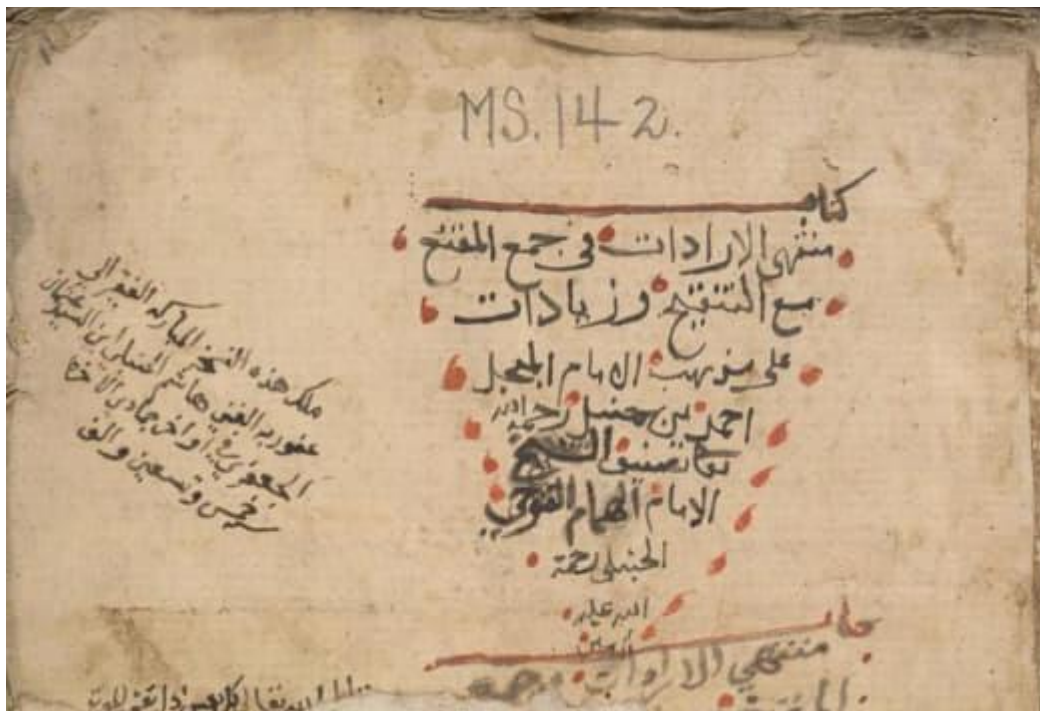 MS. 142.
كتاب
منتهى الارادات في جمع المقنع
مع التنقيح وزيادات
على مذهب الامام المبجل
احمد بن حنبل رحمه الله
تعالى تصنيف الشيخ
الامام الهمام الفتوحي
الحنبلي رحمة
الله عليه
امين
منتهي الارادات
ملك هذه النسخة المباركة الفقير الى
عفو ربه الغني هاشم الحنبلي ابن السيد عثمان
الجعفري في اواخر جمادي الاخرة
سنة خمس وتسعين والف